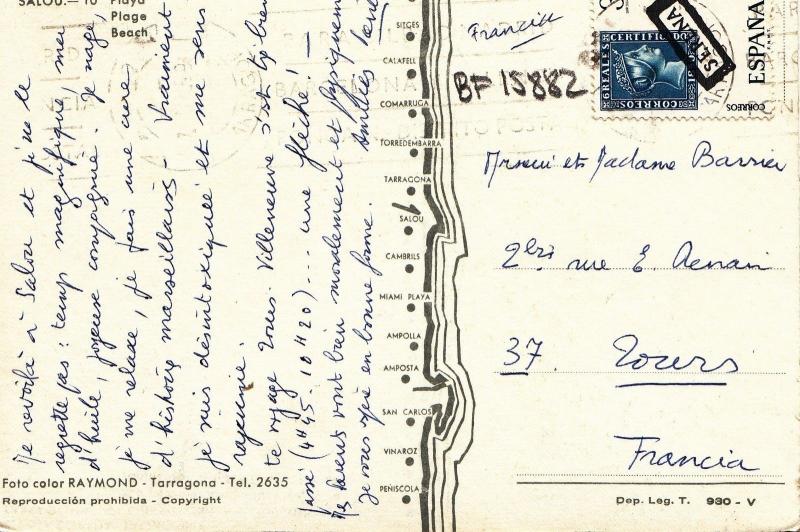 SALOU.- 10 Playa
Plage
Beach
Je revoilà à Salou et j'ne le
regrette pas : temps magnifique, mer
d'huile, joyeuse compagnie. Je nage,
je me relaxe, je fais une cure
d'histoires marseillaises - Vraiment
je suis désintoxiquée et me sens
rajeunie.
te voyage Tours. Villeneuve s'est tr bien
passé (4H45. 10H20)... une flèche! -
Mes parents vont bien moralement et physiquement
Je vous espère en bonne forme. Amitiés
SITGES
CALAFELL
COMARRUGA
TORREDEMBARRA
TARRAGONA
SALOU
CAMBRILS
MIAMI PLAYA
AMPOLLA
AMPOSTA
SAN CARLOS
VINAROZ
PEÑISCOLA
Foto color RAYMOND - Tarragona - Tel. 2635
Reproducción prohibida - Copyright
Francia
BF 15882
CERTIFICADO
6 REALES
CORREOS
ESPAÑA
CORREOS
Monsieur et Madame Barrier
2bis rue E. Aenain
37. Tours
Francia
Dep. Leg. T. 930 - V